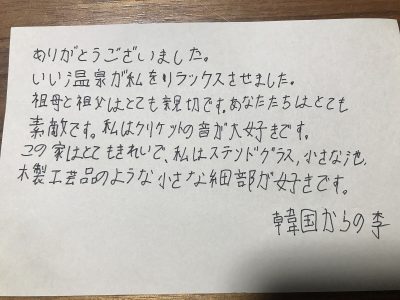 ありがとうございました。
いい温泉が私をリラックスさせました。
祖母と祖父はとても親切です。あなたたちはとても
素敵です。私はクリケットの音が大好きです。
この家はとてもきれいで、私はステンドグラス,小さな池,
木製工芸品のような小さな細部が好きです。
韓国からの李